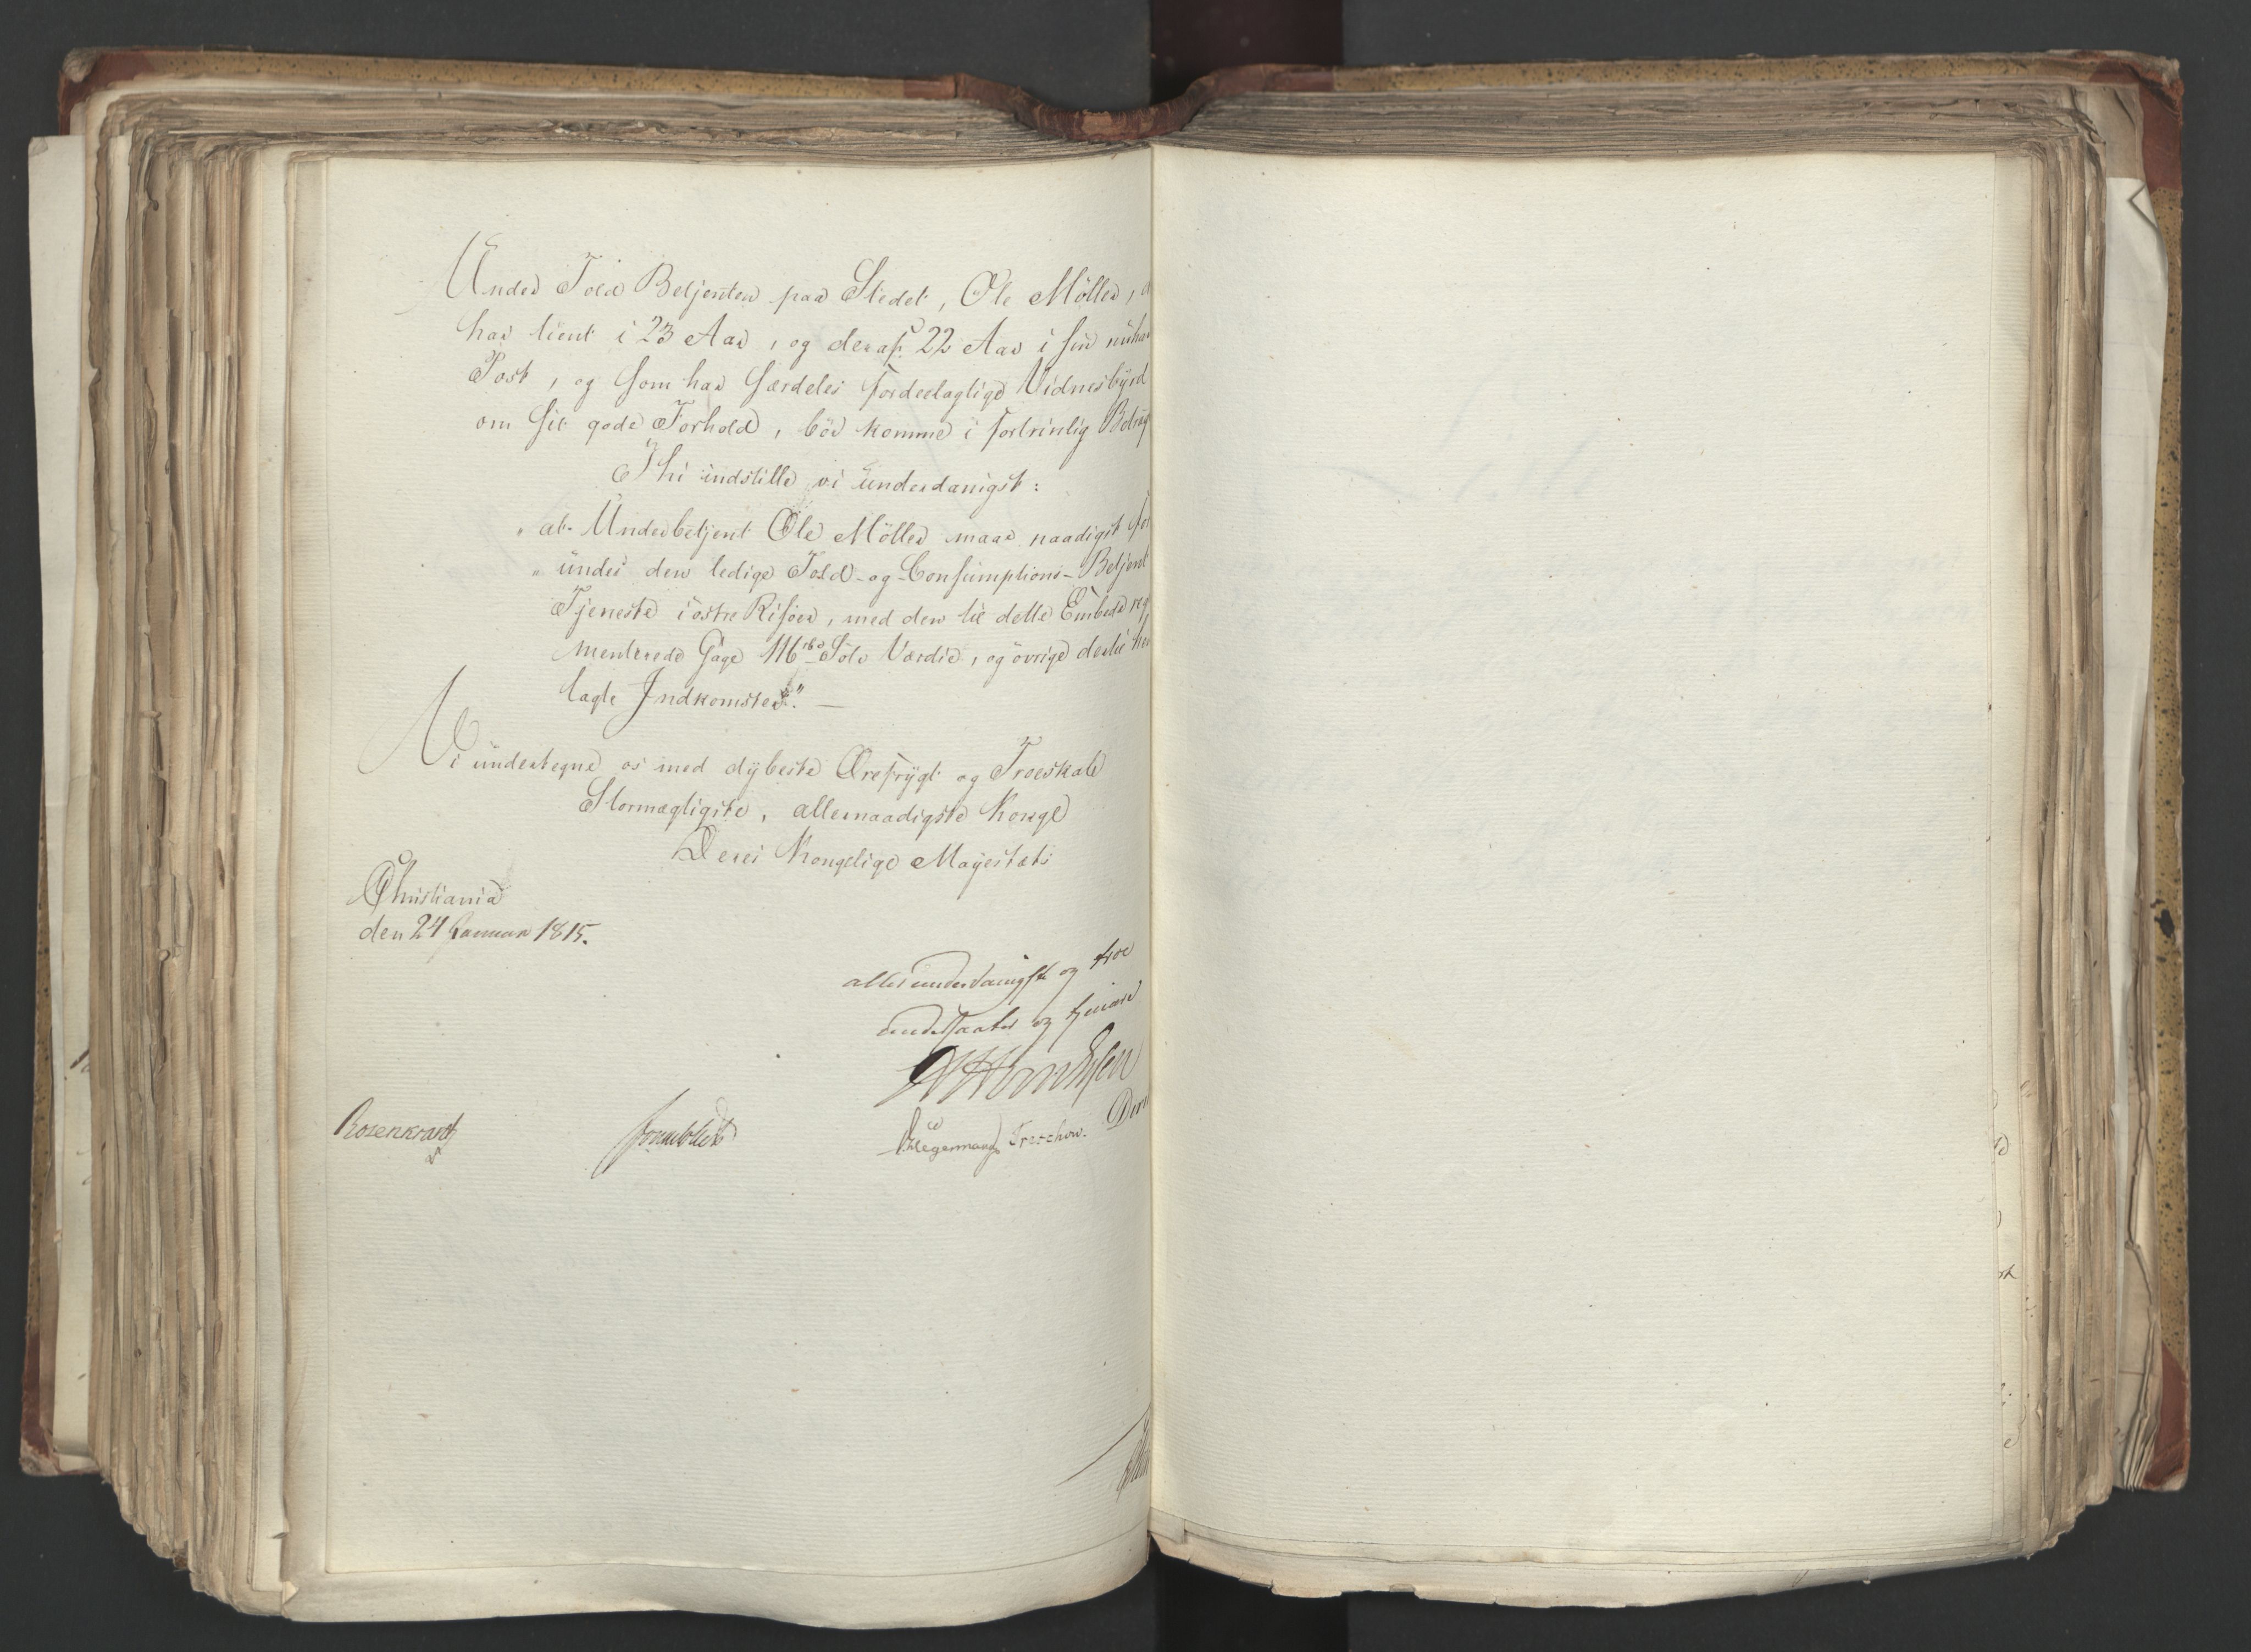 Under Told Betjenten paa Stedet, Ole Möller,
har tient i 23 Aar, og deraf 22 Aar i sin nuhav
Post, og som har særdeles fordeelagtige Vidnesbyrd
om sit gode Forhold, bör komme i fortrinlig Betrag
Thi indstille vi underdanigst:
"at Underbetjent Ole Möller maae naadigst for
"undes den ledige Told- og Consumptions-Betjent
Tjeneste i östre Risöer, med den til dette Embede reg
menterede Gage 116 rbd Sölv Værdie, og övrige dertil hen
lagte Indkomster." —
Vi undertegne os med dybeste Ærefrygt og Troeskab
Stormægtigste, allernaadigste Konge
Deres Kongelige Mayestæts
Christiania
den 24 Januar 1815.
allerunderdanigste og troe
undersaatter og tjenere
Rosenkrantz Sommhielm Hegermann Treschow.